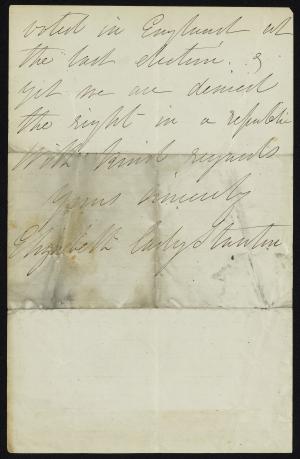 voted in England at
the last election. &
yet we are denied
the right in a republic
With kind regards
yours sincerely
Elizabeth Cady Stanton